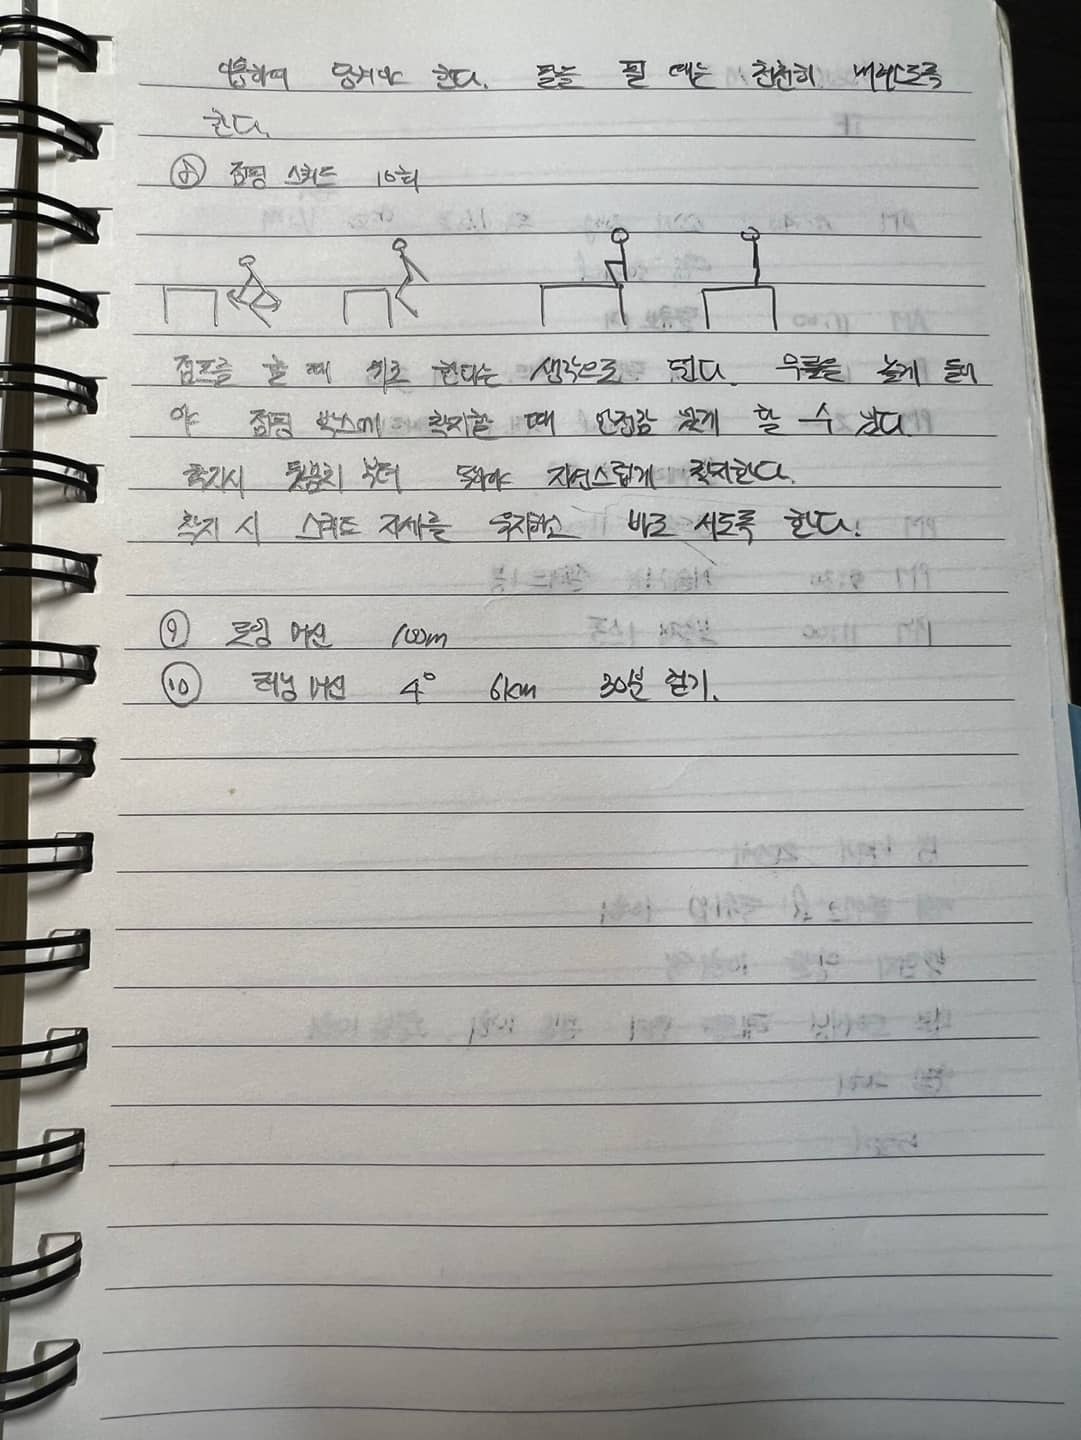 이용하여 당겨야 한다. 팔을 펼 때는 천천히 내려오도록
한다.
⑧ 점핑 스쿼트 10회
점프를 할 때 위로 한다는 생각으로 뛴다. 무릎을 높게 들어
야 점핑 박스에 착지할 때 안정감 있게 할 수 있다.
착지시 뒷꿈치 부터 닿아야 자연스럽게 착지한다.
착지 시 스쿼트 자세를 유지하고 바로 서도록 한다.
⑨ 로잉 머신 100m
⑩ 러닝 머신 4° 6km 30분 걷기.